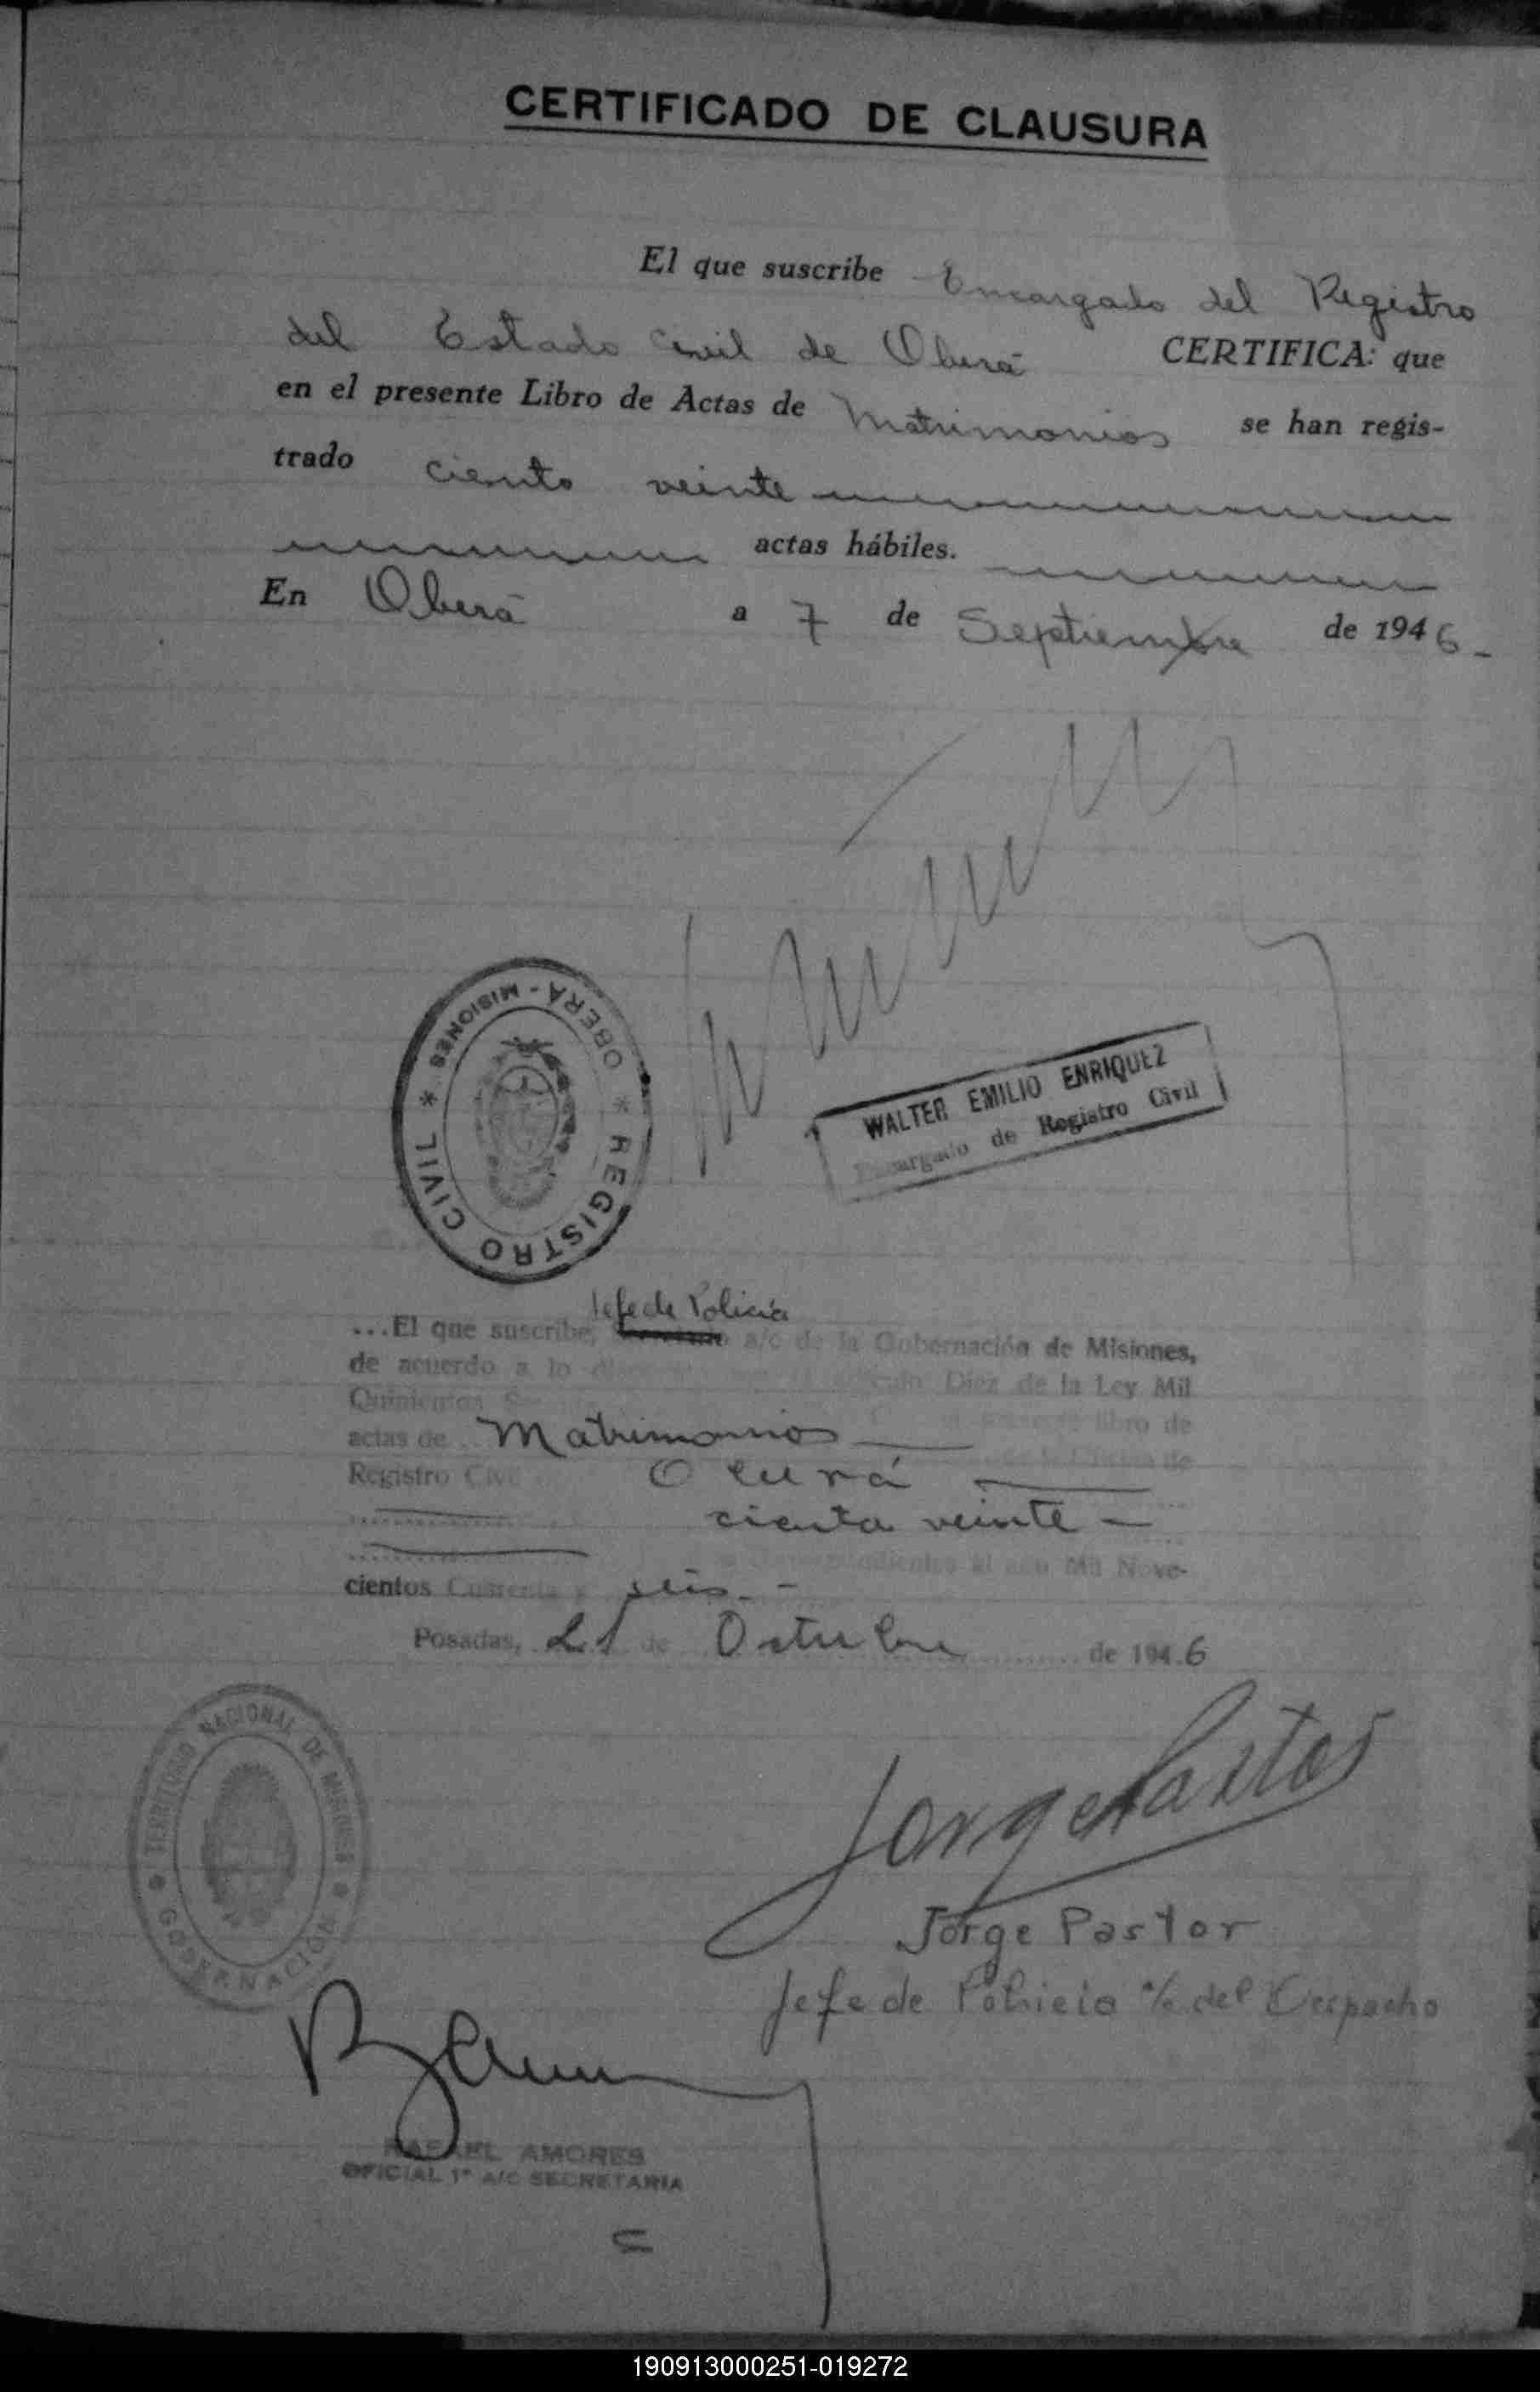 CERTIFICADO DE CLAUSURA
El que suscribe Encargado del Registro
del Estado Civil de Oberá CERTIFICA: que
en el presente Libro de Actas de Matrimonios se han regis-
trado ciento veinte
actas hábiles.
En Oberá a 7 de Septiembre de 1946.-
OBERÁ - MISIONES
* REGISTRO CIVIL *
WALTER EMILIO ENRIQUEZ
Encargado de Registro Civil
Jefe de Policía
...El que suscribe, a/c de la Gobernación de Misiones,
de acuerdo a lo artículo Diez de la Ley Mil
Quinientos el presente libro de
actas de Matrimonios de la Oficina de
Registro Civil Oberá
ciento veinte -
correspondientes al año Mil Nove-
cientos Cuarenta y seis.-
Posadas, 21 de Octubre de 1946
TERRITORIO NACIONAL DE MISIONES
GOBERNACIÓN
Jorge Pastor
Jorge Pastor
Jefe de Policía a/c del Despacho
RAFAEL AMORES
OFICIAL 1º A/C SECRETARIA
190913000251-019272